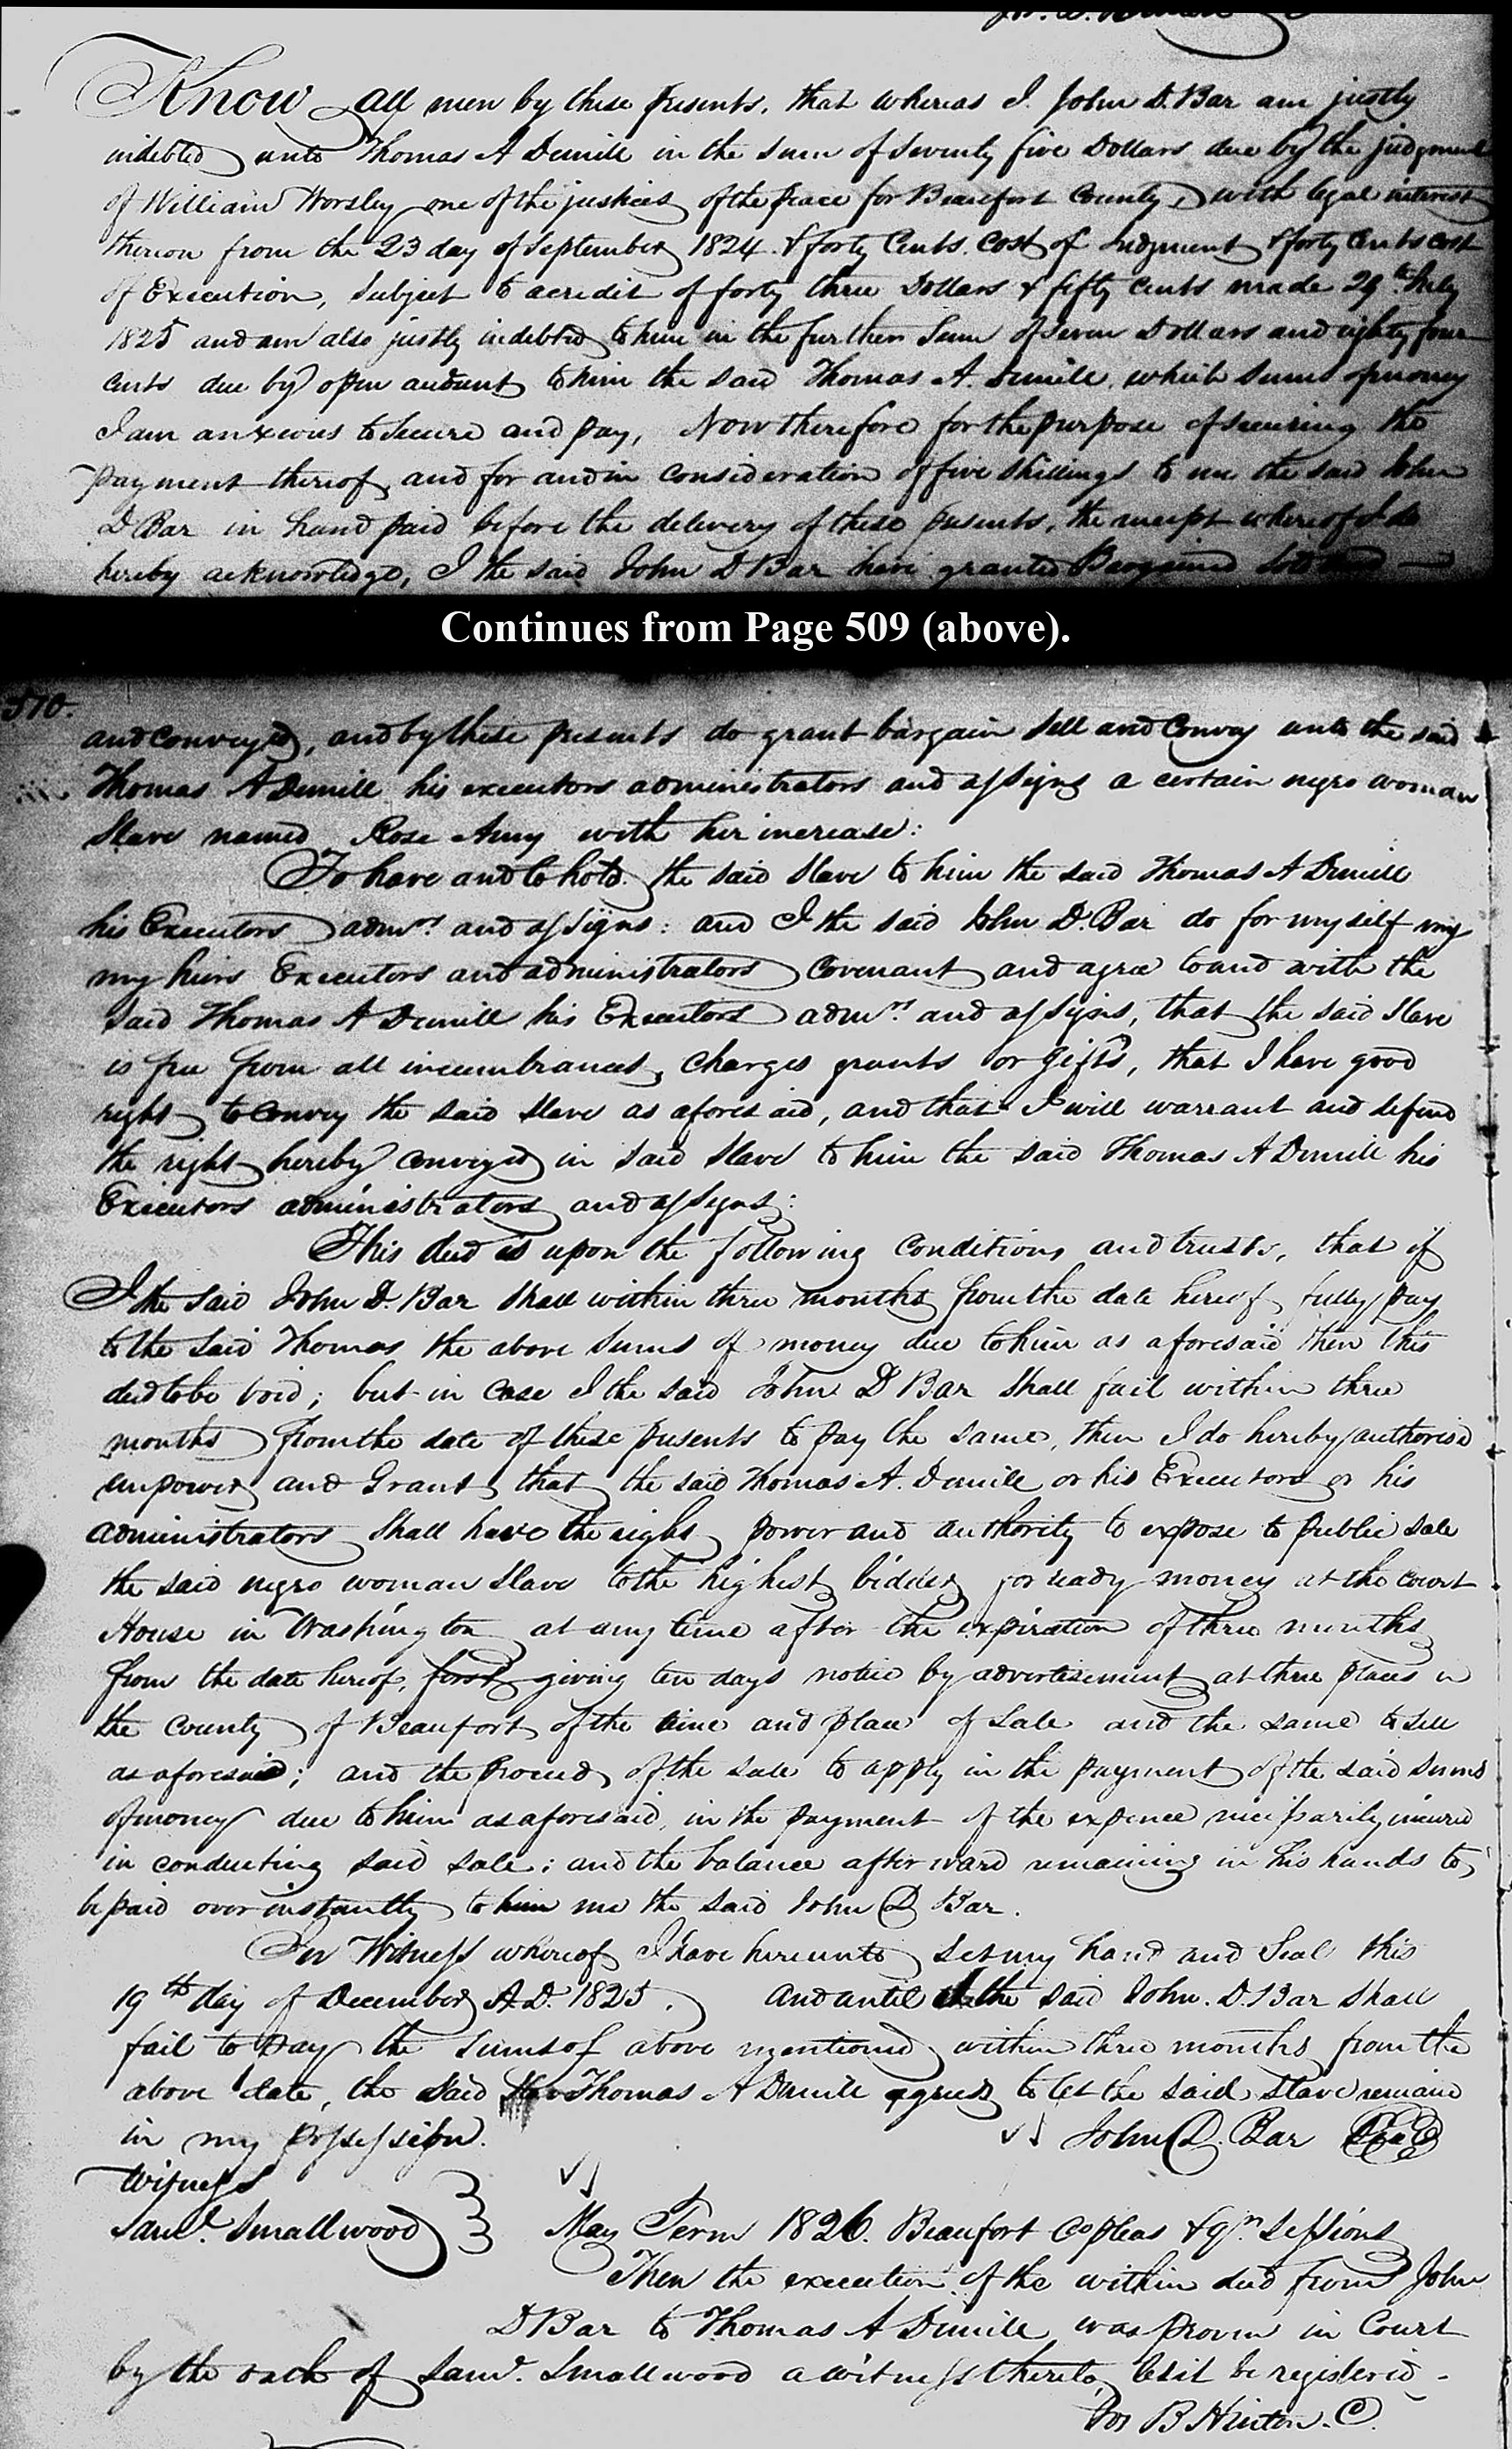 Know all men by these presents, that whereas I. John D. Bar am justly
indebted unto Thomas A Demill in the sum of seventy five Dollars due by the judgment
of William Worsley one of the justices of the peace for Beaufort County, with legal interest
thereon from the 23 day of September 1824. & forty Cents. cost of Judgment & forty Cents cost
of Execution, subject to a credit of forty three Dollars & fifty cents made 29th July
1825 and am also justly indebted to him in the further sum of seven Dollars and eighty four
cents due by open account to him the said Thomas A. Demill. which sums of money
I am anxious to secure and pay, Now therefore for the purpose of securing the
payment thereof, and for and in consideration of five shillings to me the said John
D Bar in hand paid before the delivery of these presents, the receipt whereof I do
hereby acknowledge, I the said John D Bar have granted Bargained sold
Continues from Page 509 (above).
510.
and conveyed, and by these presents do grant bargain sell and Convey unto the said
Thomas A Demill his executors administrators and assigns a certain negro woman
slave named Rose Amy with her increase:
To have and to hold. the said slave to him the said Thomas A Demill
his Executors admrs. and assigns: and I the said John D. Bar do for myself my
my heirs Executors and administrators covenant and agree to and with the
said Thomas A Demill his Executors admrs. and assigns, that the said slave
is free from all incumbrances, charges grants or gifts, that I have good
right to convey the said slave as aforesaid, and that I will warrant and defend
the right hereby conveyed in said slave to him the said Thomas A Demill his
Executors administrators and assigns:
This deed is upon the following conditions and trusts, that if
I the said John D. Bar shall within three months from the date hereof, fully pay
to the said Thomas the above sums of money due to him as aforesaid then this
deed to be void; but in case I the said John D Bar shall fail within three
months from the date of these presents to pay the same, then I do hereby authorise
empower and Grant that the said Thomas A. Demill or his Executors or his
administrators shall have the right power and authority to expose to public sale
the said negro woman slave to the highest bidder for ready money at the court
House in Washington at any time after the expiration of three months
from the date hereof, first giving ten days notice by advertisement at three places in
the county of Beaufort of the time and place of sale and the same to sell
as aforesaid; and the proceeds of the sale to apply in the payment of the said sums
of money due to him as aforesaid, in the payment of the expence necessarily incured
in conducting said sale; and the balance afterward remaining in his hands to
be paid over instantly to him me the said John D Bar.
In Witness whereof I have hereunto set my hand and seal this
19th day of December A.D. 1825. and until I the said John. D. Bar shall
fail to pay the sums of above mentioned within three months from the
above date, the said Thomas A Demill agrees to let the said slave remain
in my possession.
John D. Bar Seal
Witness
Saml. Smallwood
May Term 1826. Beaufort Co pleas & qr. sessions
Then the execution of the within deed from John
D Bar to Thomas A Demill was proven in Court
by the oath of Saml. Smallwood a witness thereto, let it be registered -
Jos B Hinton. C.